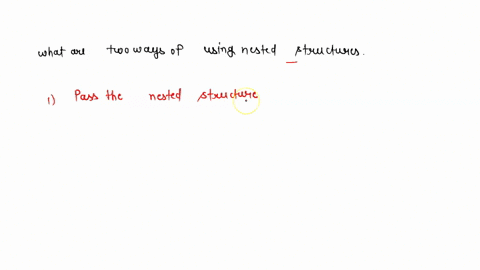 what are two ways of using nested structures.
1) Pass the nested structure